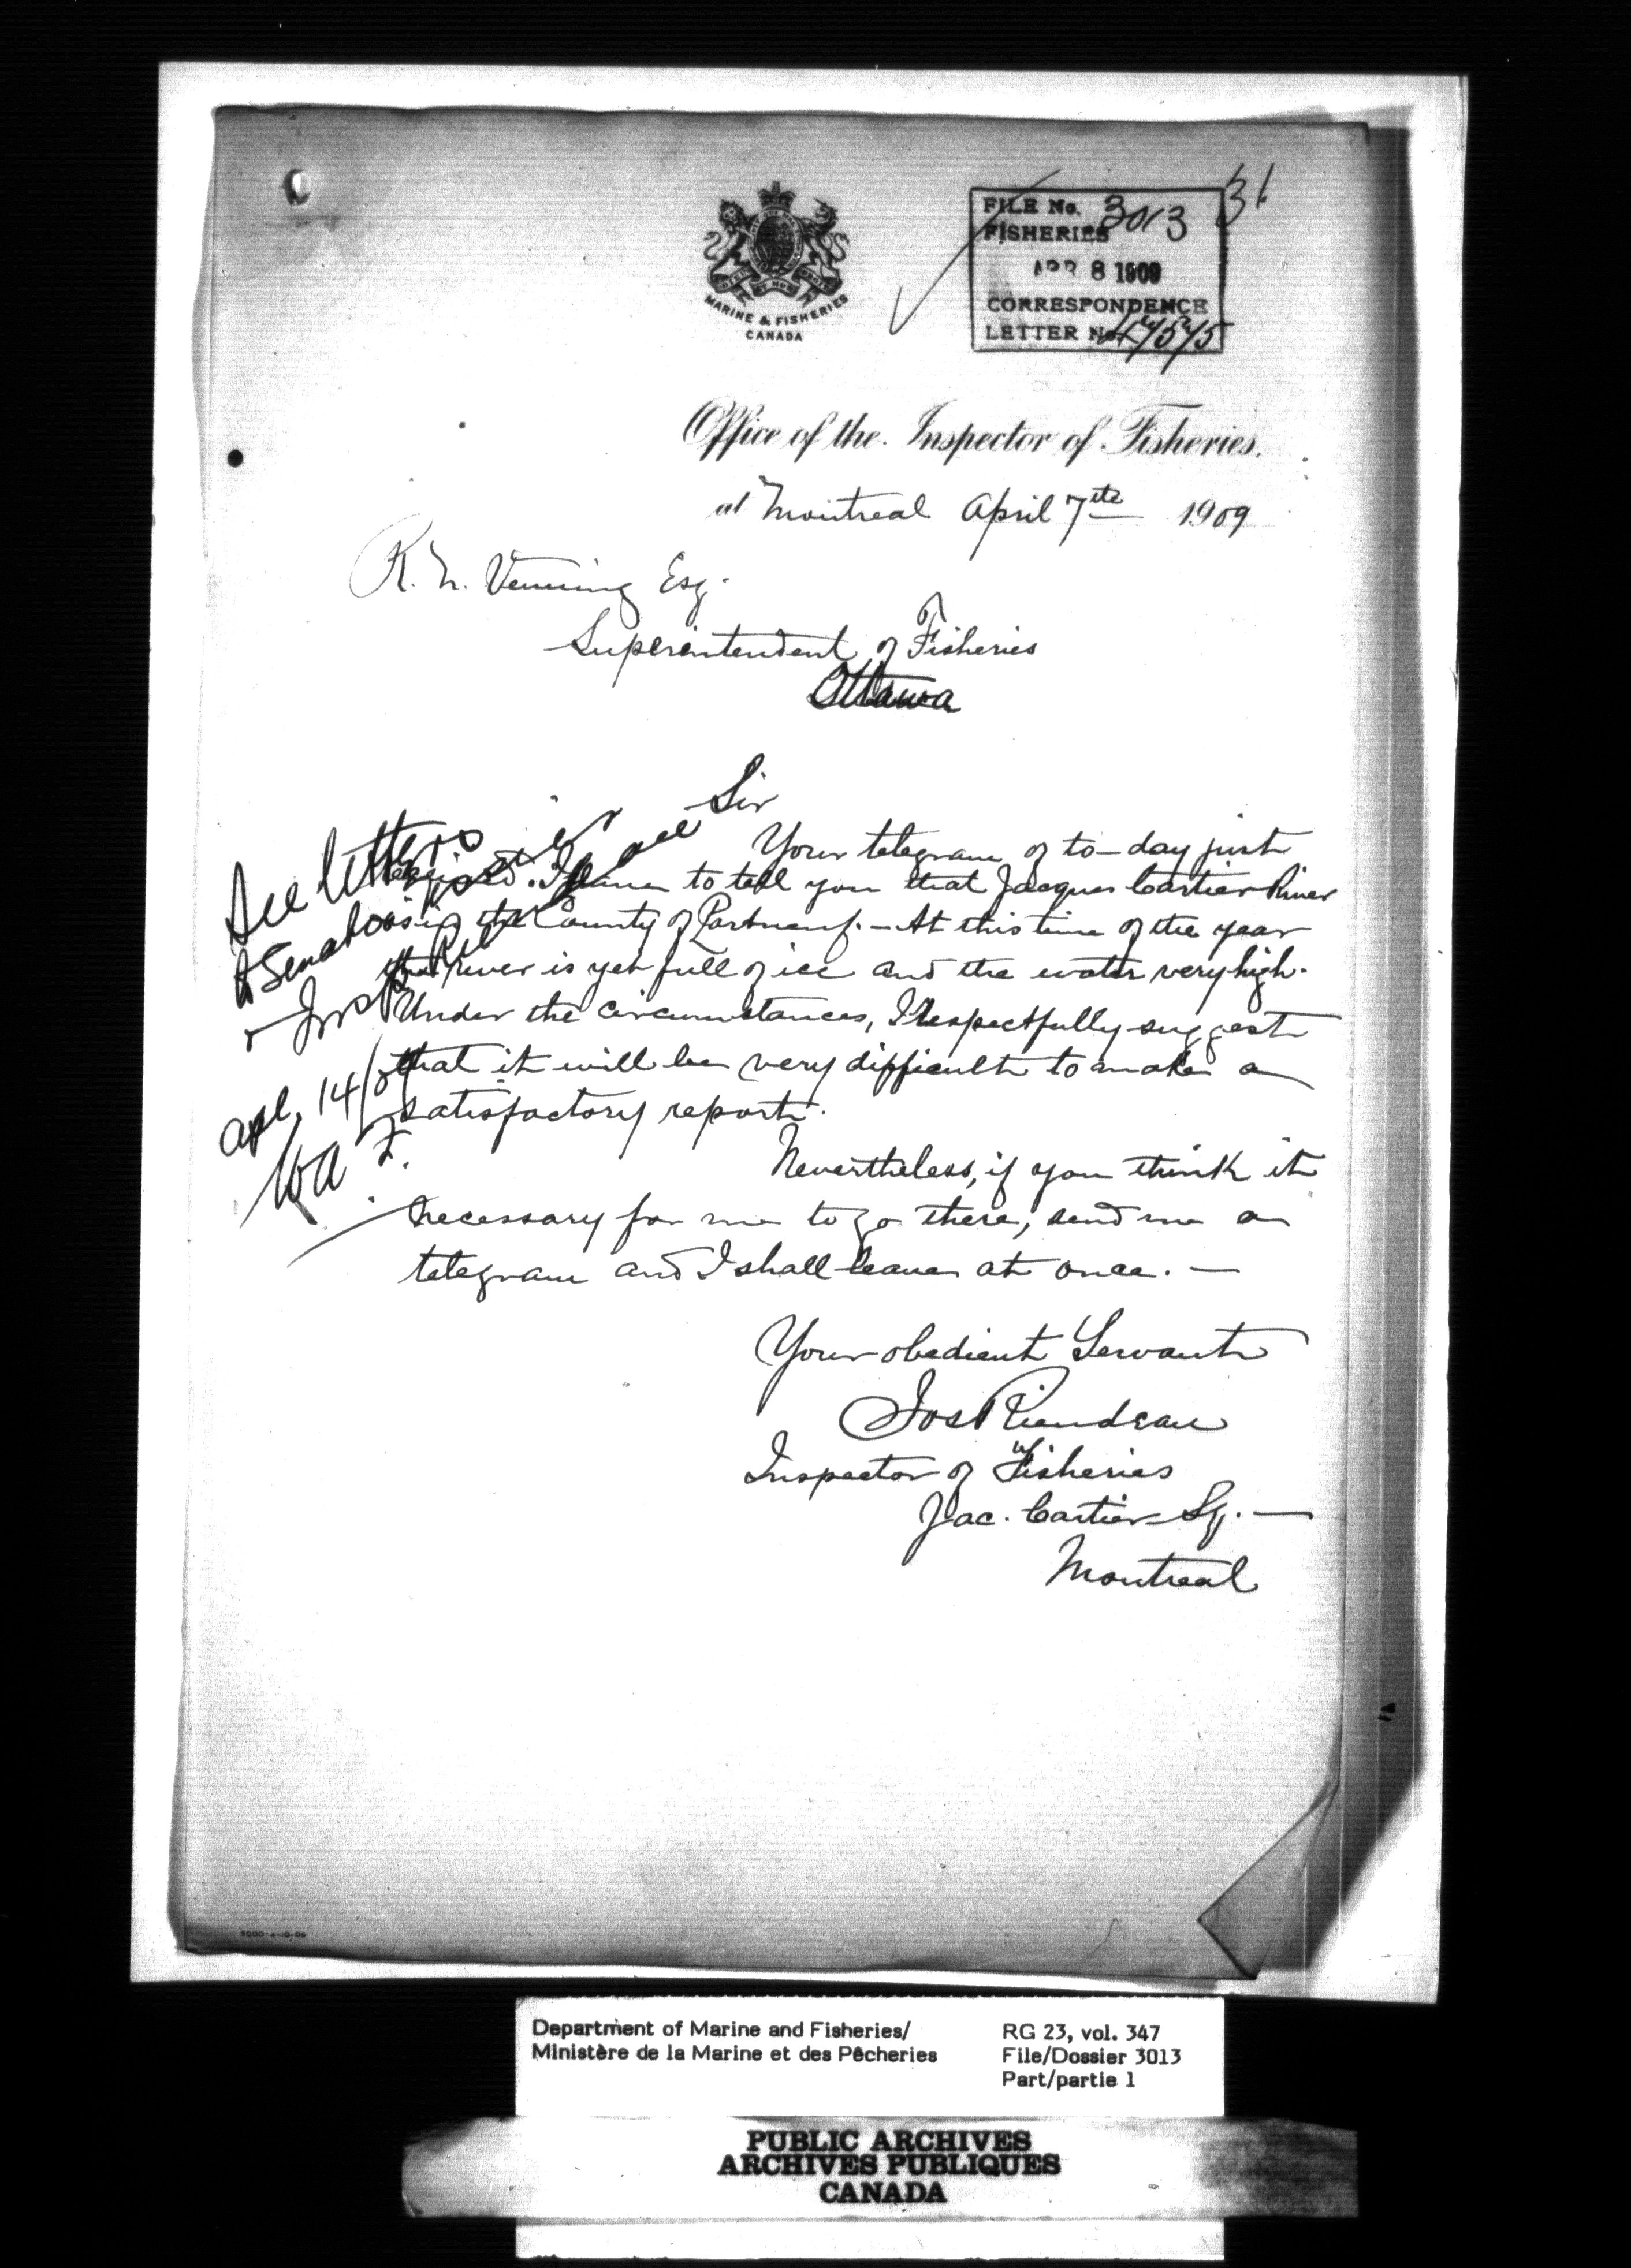 31
FILE No. 3013
FISHERIES
APR 8 1909
CORRESPONDENCE
LETTER No.
MARINE & FISHERIES
CANADA
Office of the Inspector of Fisheries.
at Montreal April 7th 1909
R. N. Venning Esq.
Superintendent of Fisheries
Ottawa
Sir
Your telegram of to-day just
received. I have to tell you that Jacques Cartier River
is in the County of Portneuf. – At this time of the year
that river is yet full of ice and the water very high.
Under the circumstances, I respectfully suggest
that it will be very difficult to make a
satisfactory report.
Nevertheless, if you think it
necessary for me to go there, send me a
telegram and I shall leave at once. –
Your obedient Servant
Jos Riendeau
Inspector of Fisheries
Jac. Cartier Sq. –
Montreal
See letters
to Senator
Apl. 14/09
5000-4-10-09
Department of Marine and Fisheries/
Ministère de la Marine et des Pêcheries
RG 23, vol. 347
File/Dossier 3013
Part/partie 1
PUBLIC ARCHIVES
ARCHIVES PUBLIQUES
CANADA